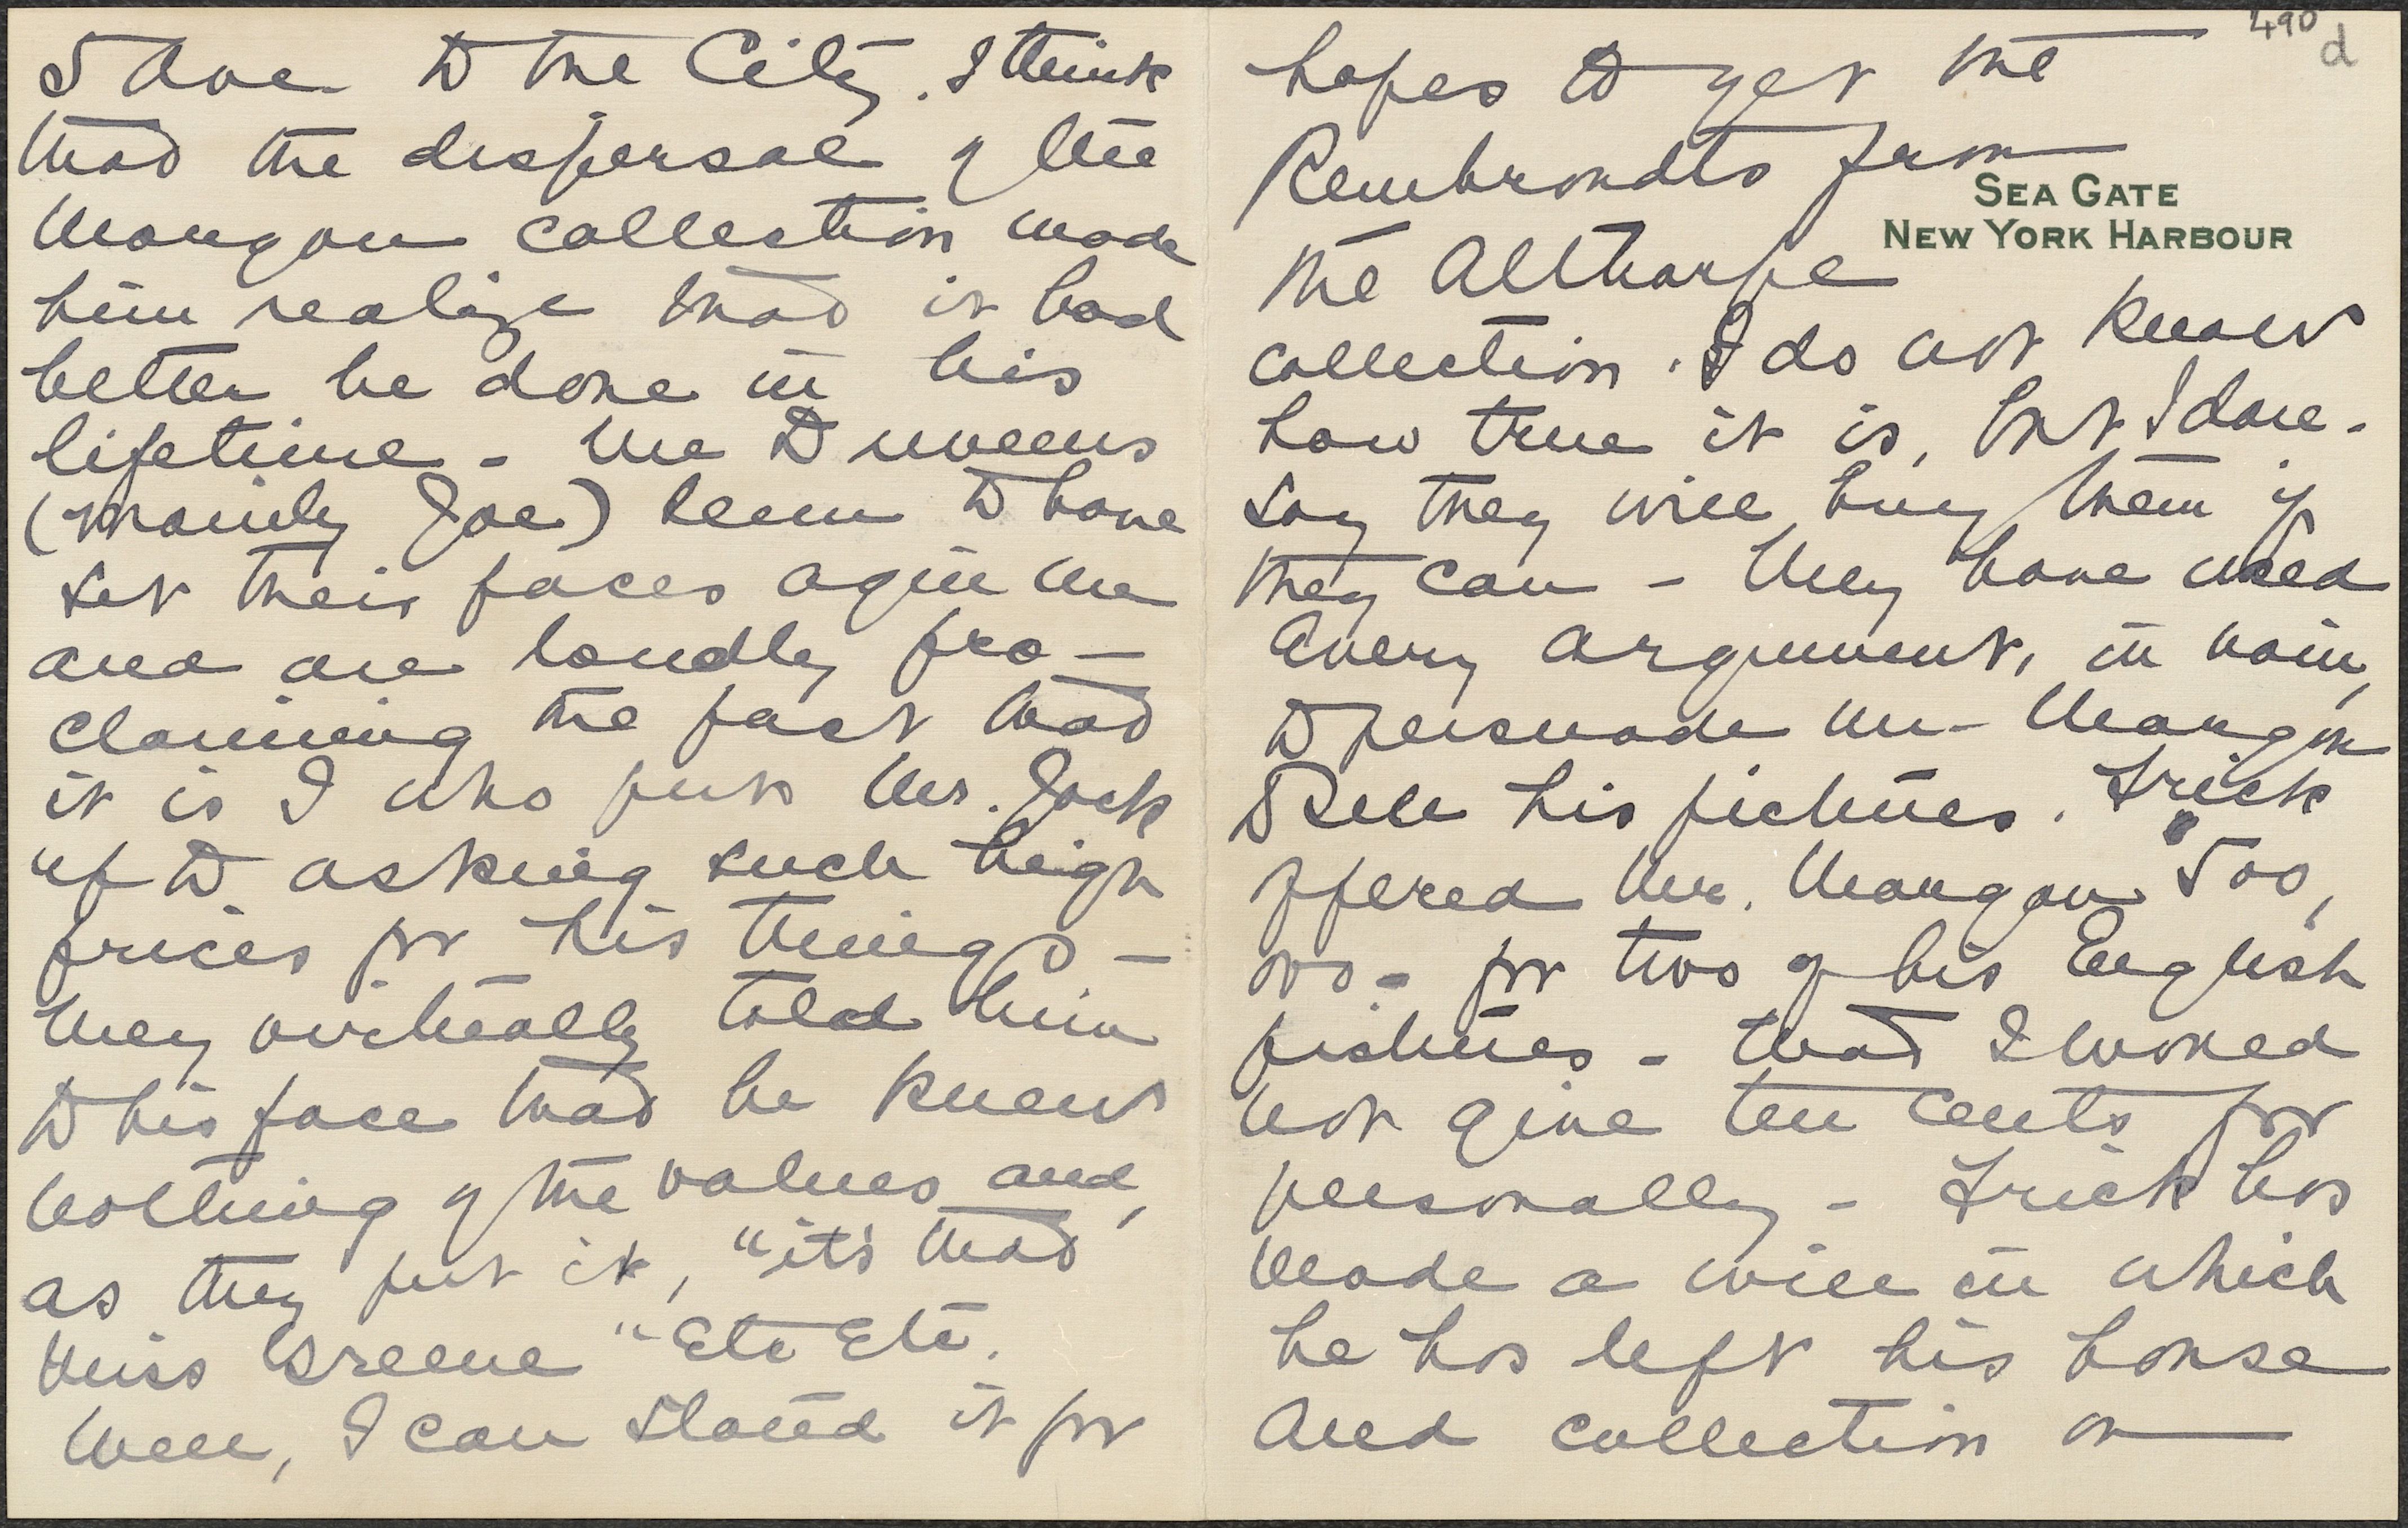 5 Ave to the City. I think
that the dispersal of the
Morgan collection made
him realize that it had
better be done in his
lifetime - The Duveens
(mainly Joe) seem to have
set their faces agin me
and are loudly pro-
claiming the fact that
it is I who puts Mr. Jack
"up to asking such high
prices for his things -
They virtually told him
to his face that he knew
nothing of the values and,
as they put it, "it's that
Miss Greene" Etc Etc.
Well, I can stand it for
490
d
hopes to get the
Rembrandts from
SEA GATE
NEW YORK HARBOUR
the Althorpe
collection. I do not know
how true it is, but I dare-
say they will buy them if
they can - They have used
every argument, in vain,
to persuade Mr Morgan
to sell his pictures. Frick
offered Mr. Morgan 500,
000 - for two of his English
pictures - that I would
not give ten cents for
personally - Frick has
made a will in which
he has left his house
and collection on